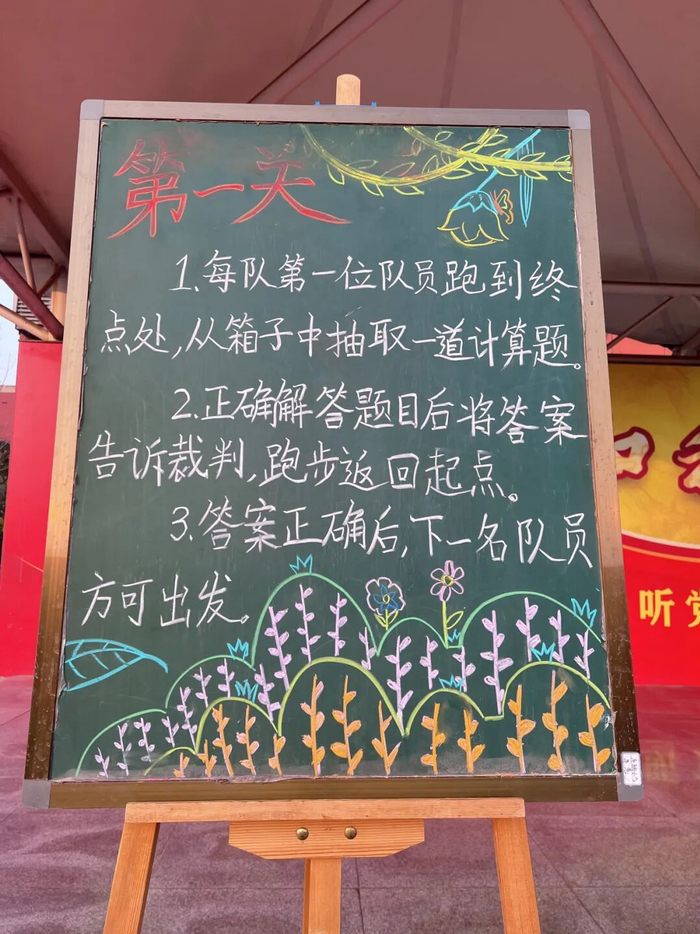 第一关
1.每队第一位队员跑到终
点处,从箱子中抽取一道计算题。
2.正确解答题目后将答案
告诉裁判,跑步返回起点。
3.答案正确后,下一名队员
方可出发。
听党